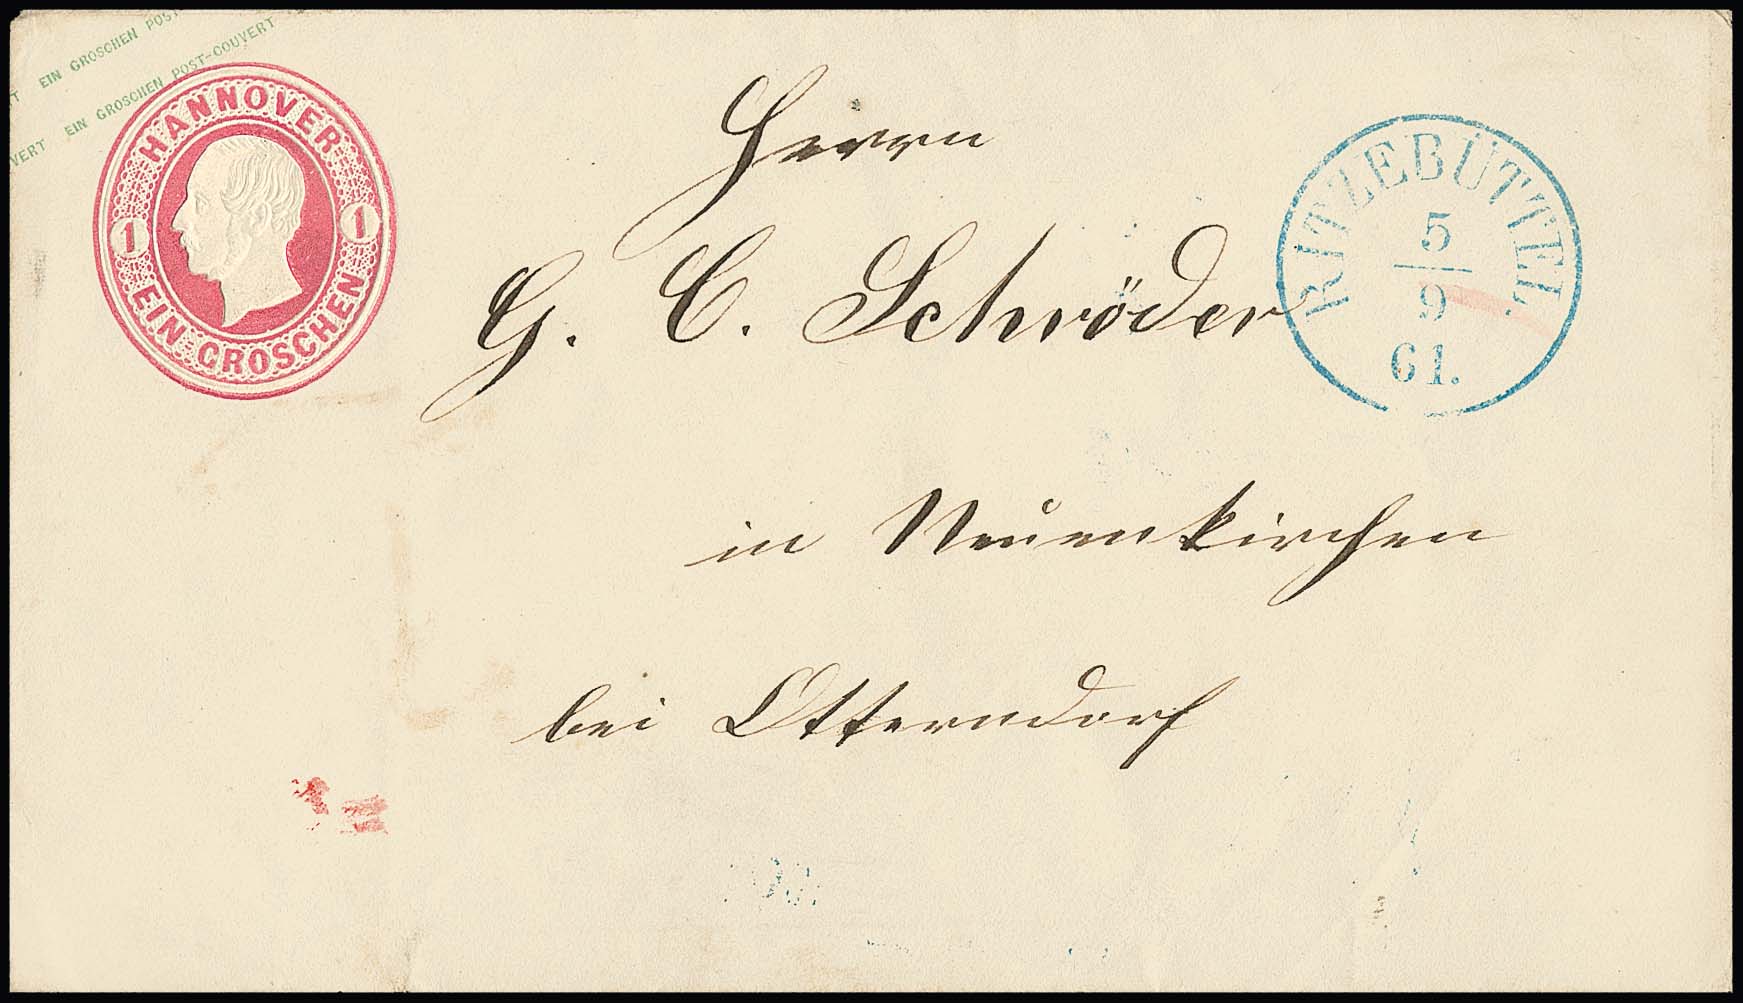 EIN GROSCHEN POST
VERT EIN GROSCHEN POST-COUVERT
HANNOVER
1 1
EIN GROSCHEN
Herrn
G. C. Schröder
in Neuenkirchen
bei Otterndorf
RITZEBÜTTEL.
5
9
61.